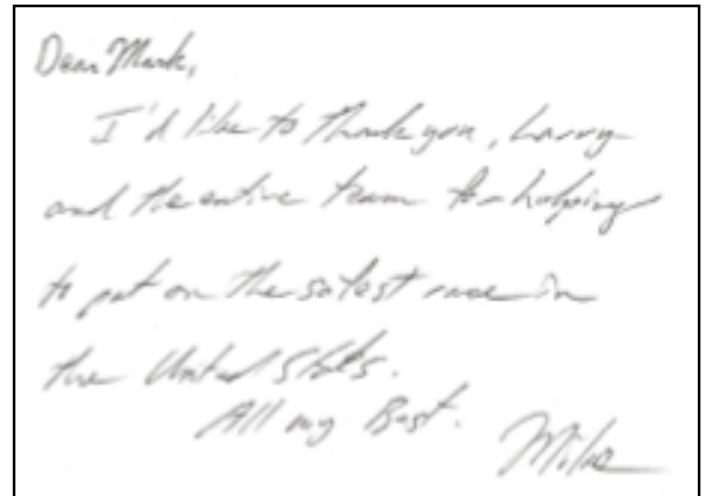 Dear Mark,
I'd like to thank you, Larry
and the entire team for helping
to put on the safest race in
the United States.
All my Best.
Mike